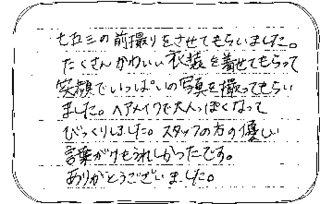 七五三の前撮りをさせてもらいました。
たくさんかわいい衣装を着せてもらって
笑顔でいっぱいの写真を撮ってもらい
ました。ヘアメイクで大人っぽくなって
びっくりしました。スタッフの方の優しい
言葉がけもうれしかったです。
ありがとうございました。